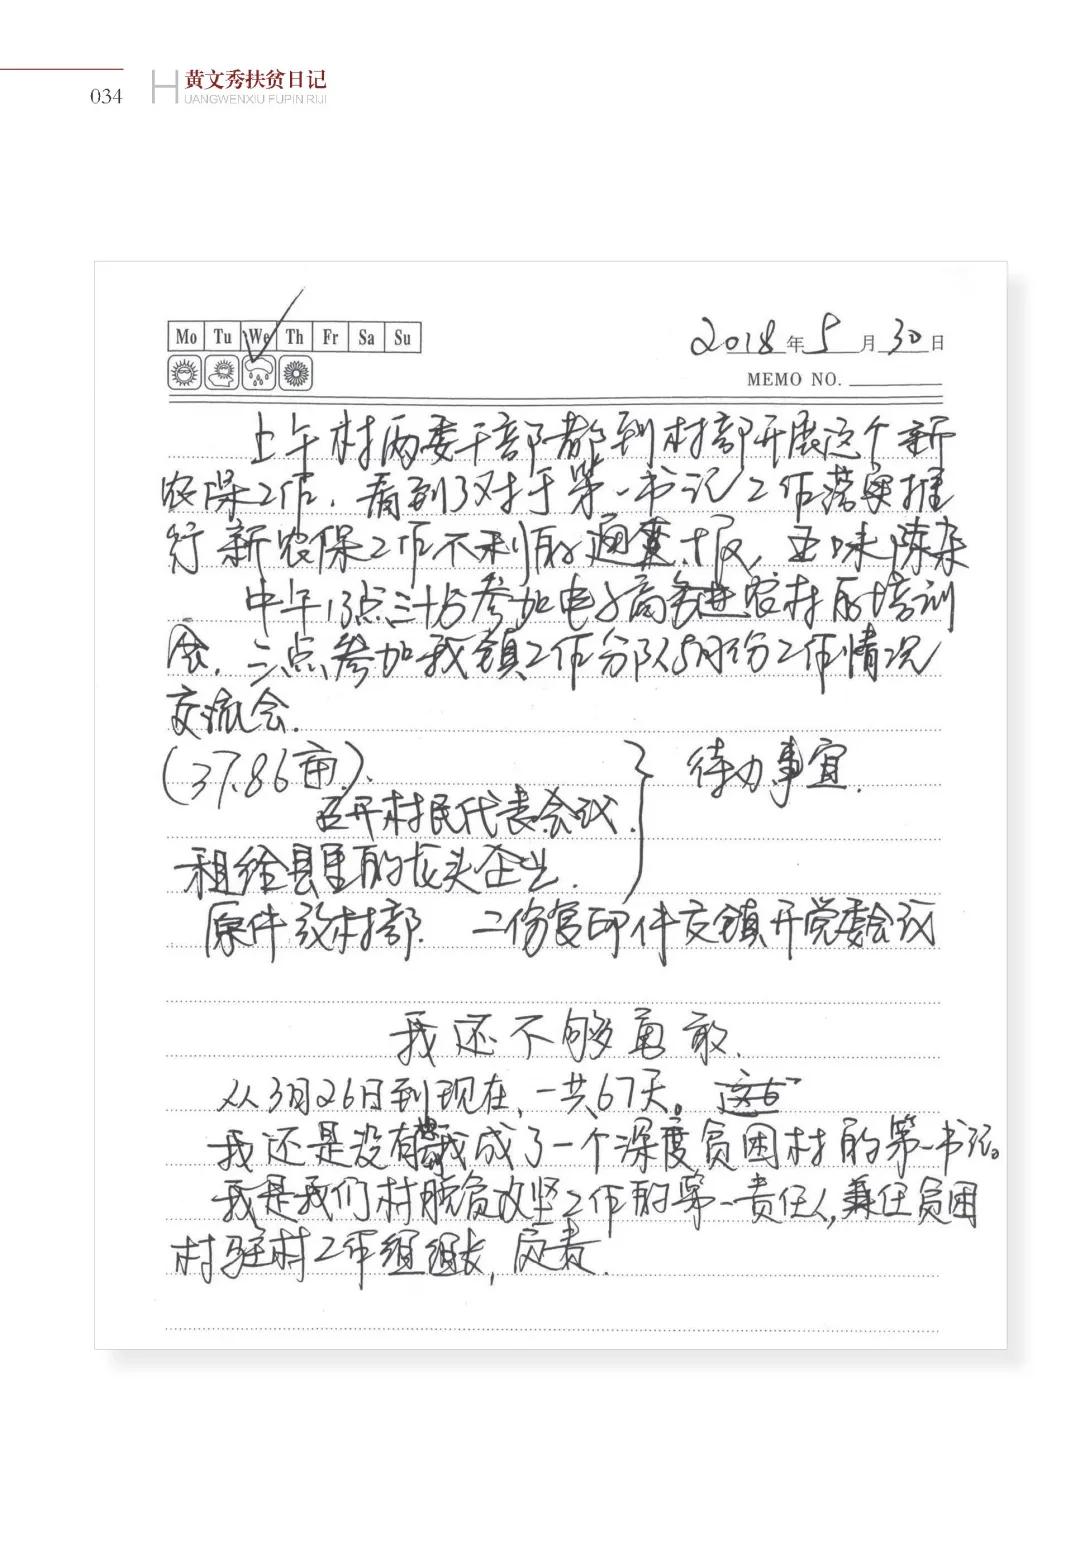 034
黄文秀扶贫日记
HUANGWENXIU FUPIN RIJI
Mo Tu We Th Fr Sa Su
2018年5月30日
MEMO NO.
上午村两委干部都到村部开展这个新
农保工作，看到了对于第一书记工作落实推
行新农保工作不利的通报，五味陈杂
中午13点三十分参加电子商务进农村的培训
会，三点参加我镇工作分队5月份工作情况
交流会.
(37.86亩).
待办事宜.
召开村民代表会议.
租给县里的龙头企业.
原件放村部. 二份复印件交镇开党委会议
我还不够勇敢.
从3月26日到现在，一共67天。这也
我还是没有 我成了一个深度贫困村的第一书记。
我是我们村脱贫攻坚工作的第一责任人，兼任贫困
村驻村工作组组长，负责.